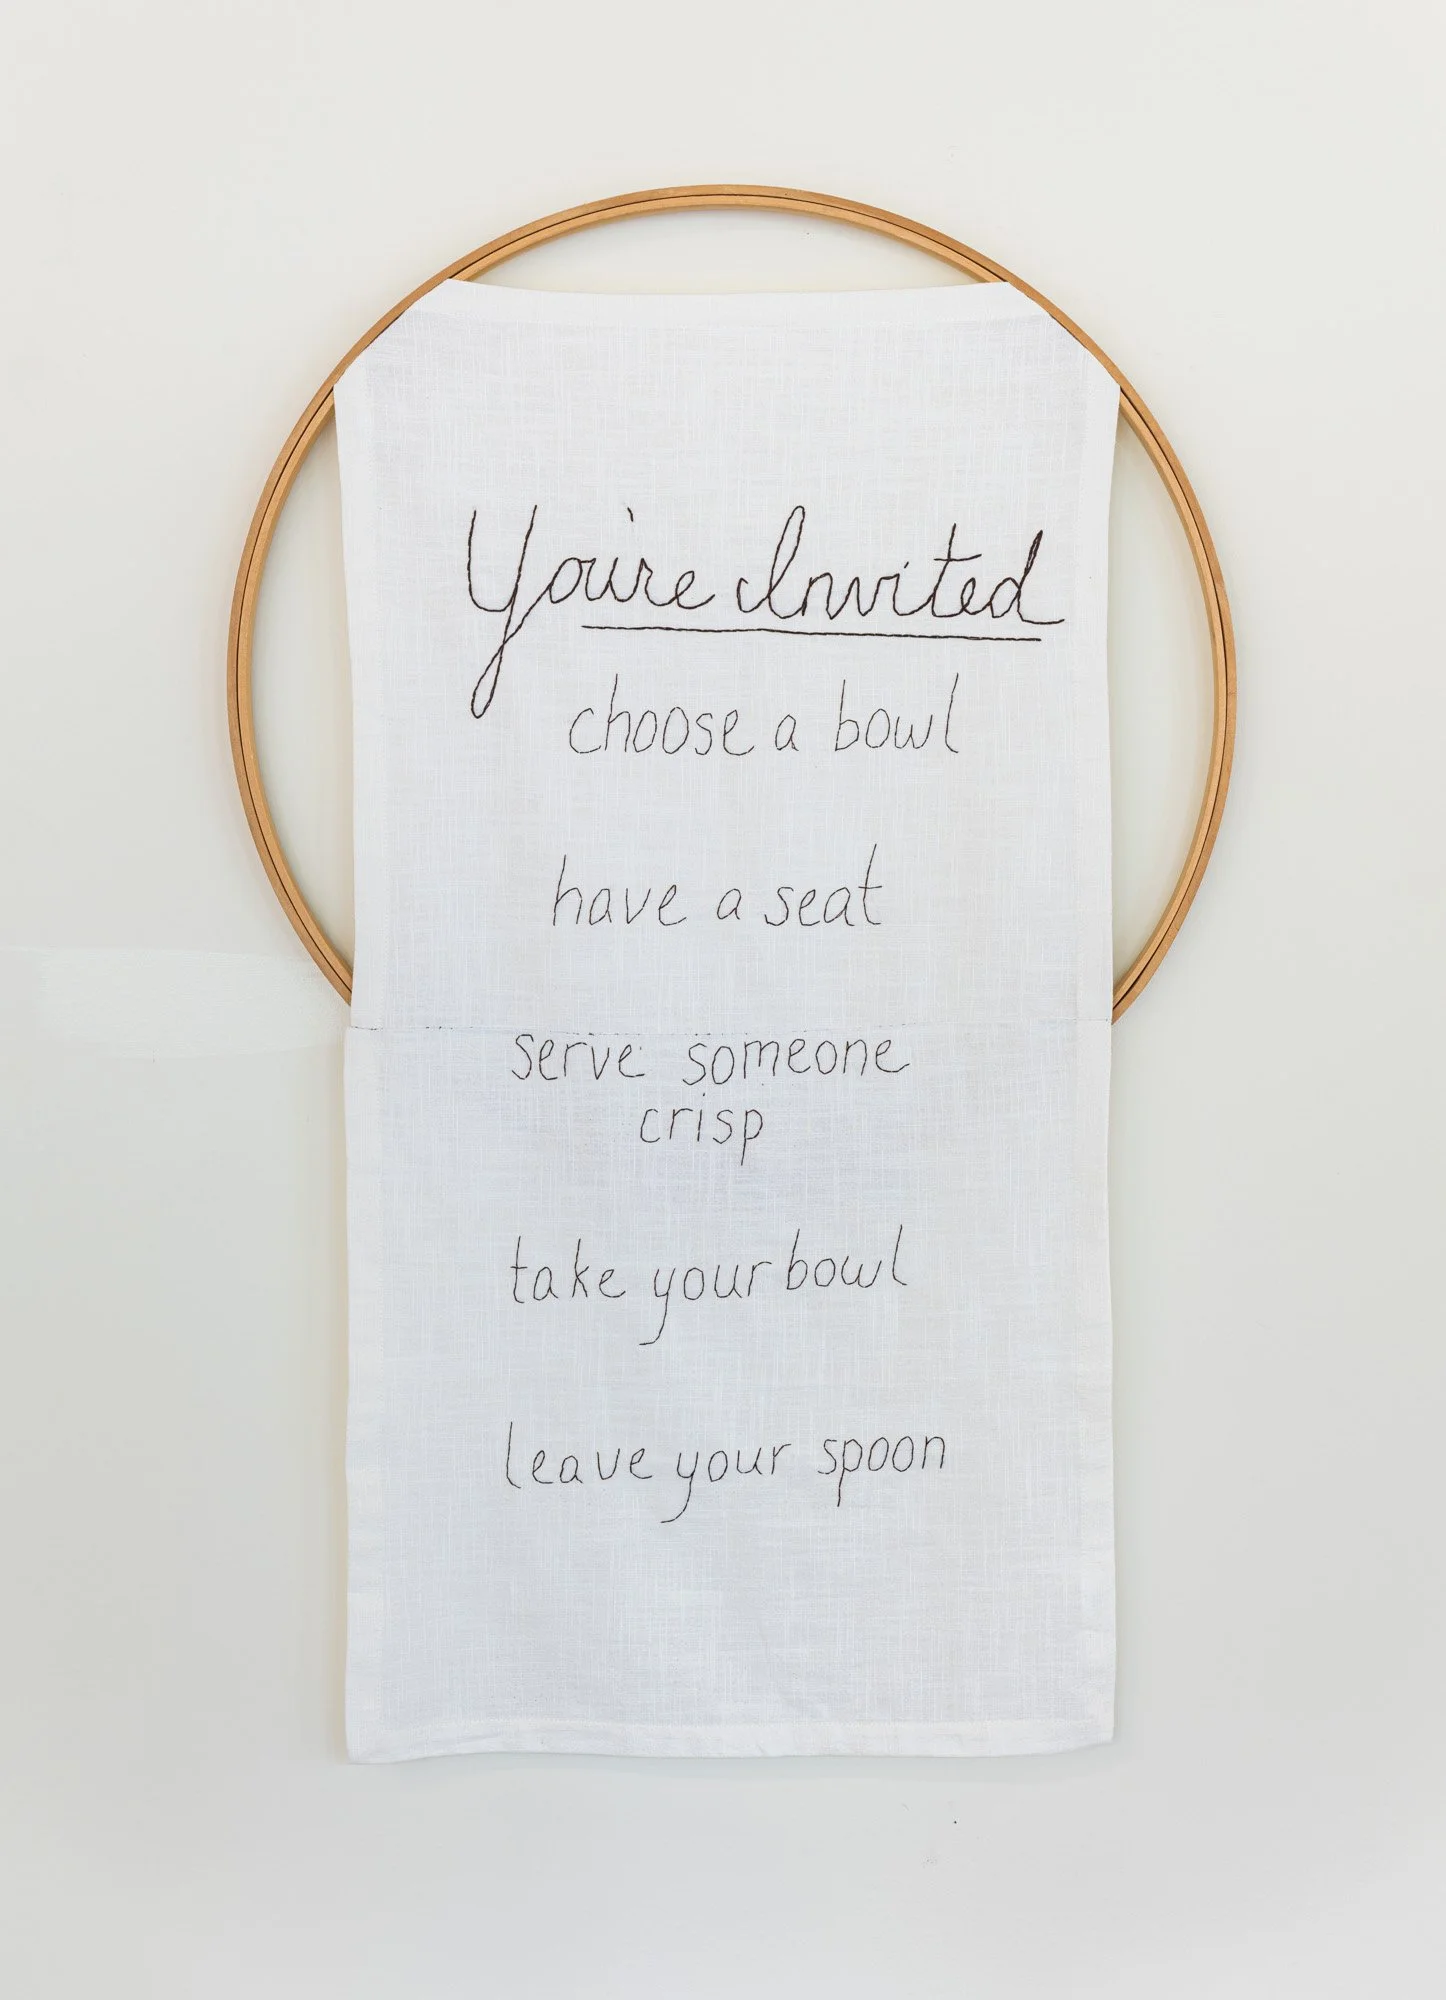 You're Invited
choose a bowl
have a seat
serve someone
crisp
take your bowl
leave your spoon